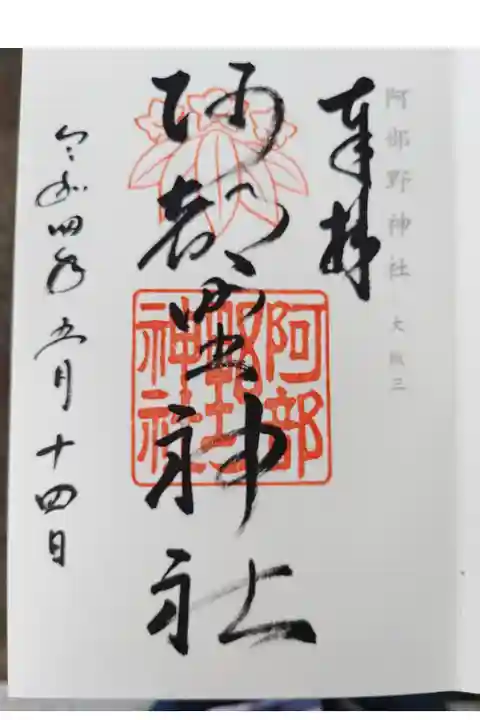 阿部野神社 大阪三
奉拝
阿部野神社
阿部野神社
令和四年五月十四日